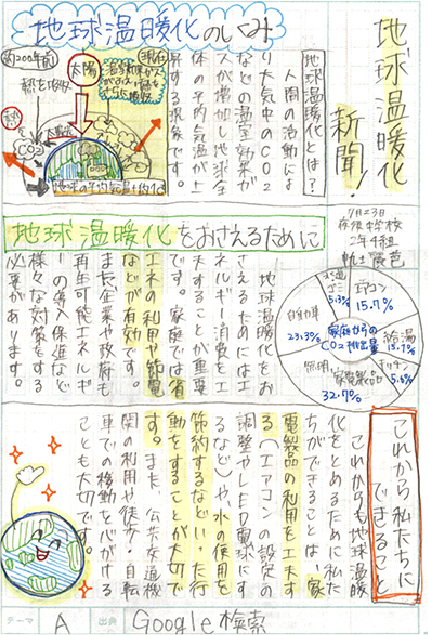 地球温暖化
新聞！
7月23日
2年4組
地球温暖化のしくみ
地球温暖化とは？
人間の活動によ
り大気中のCO2
などの温室効果ガ
スが増加し地球全
体の平均気温が上
昇する現象です。
約200年前
現在
太陽
CO2
地球の平均気温14℃
地球温暖化をおさえるために
地球温暖化をお
さえるためにはエ
ネルギー消費をエ
夫することが重要
です。家庭では省
エネの利用や節電
などが有効です。
また企業や政府も
再生可能エネルギ
ーの導入促進など
様々な対策をする
必要があります。
家庭からの
CO2排出量
15.7%
給湯
15.7%
キッチン
5.6%
照明・家電製品
32.7%
自動車
23.3%
これから私たちに
できること
これから地球温暖
化をとめるために私た
ちができることは、家
電製品の利用を工夫す
る（エアコンの設定の
調整やLED電球にす
るなど）や、水の使用を
節約するなどいった行
動をすることが大切で
す。また、公共交通機
関の利用や徒歩・自転
車での移動を心がける
ことも大切です。
テーマ
A
出典
Google検索